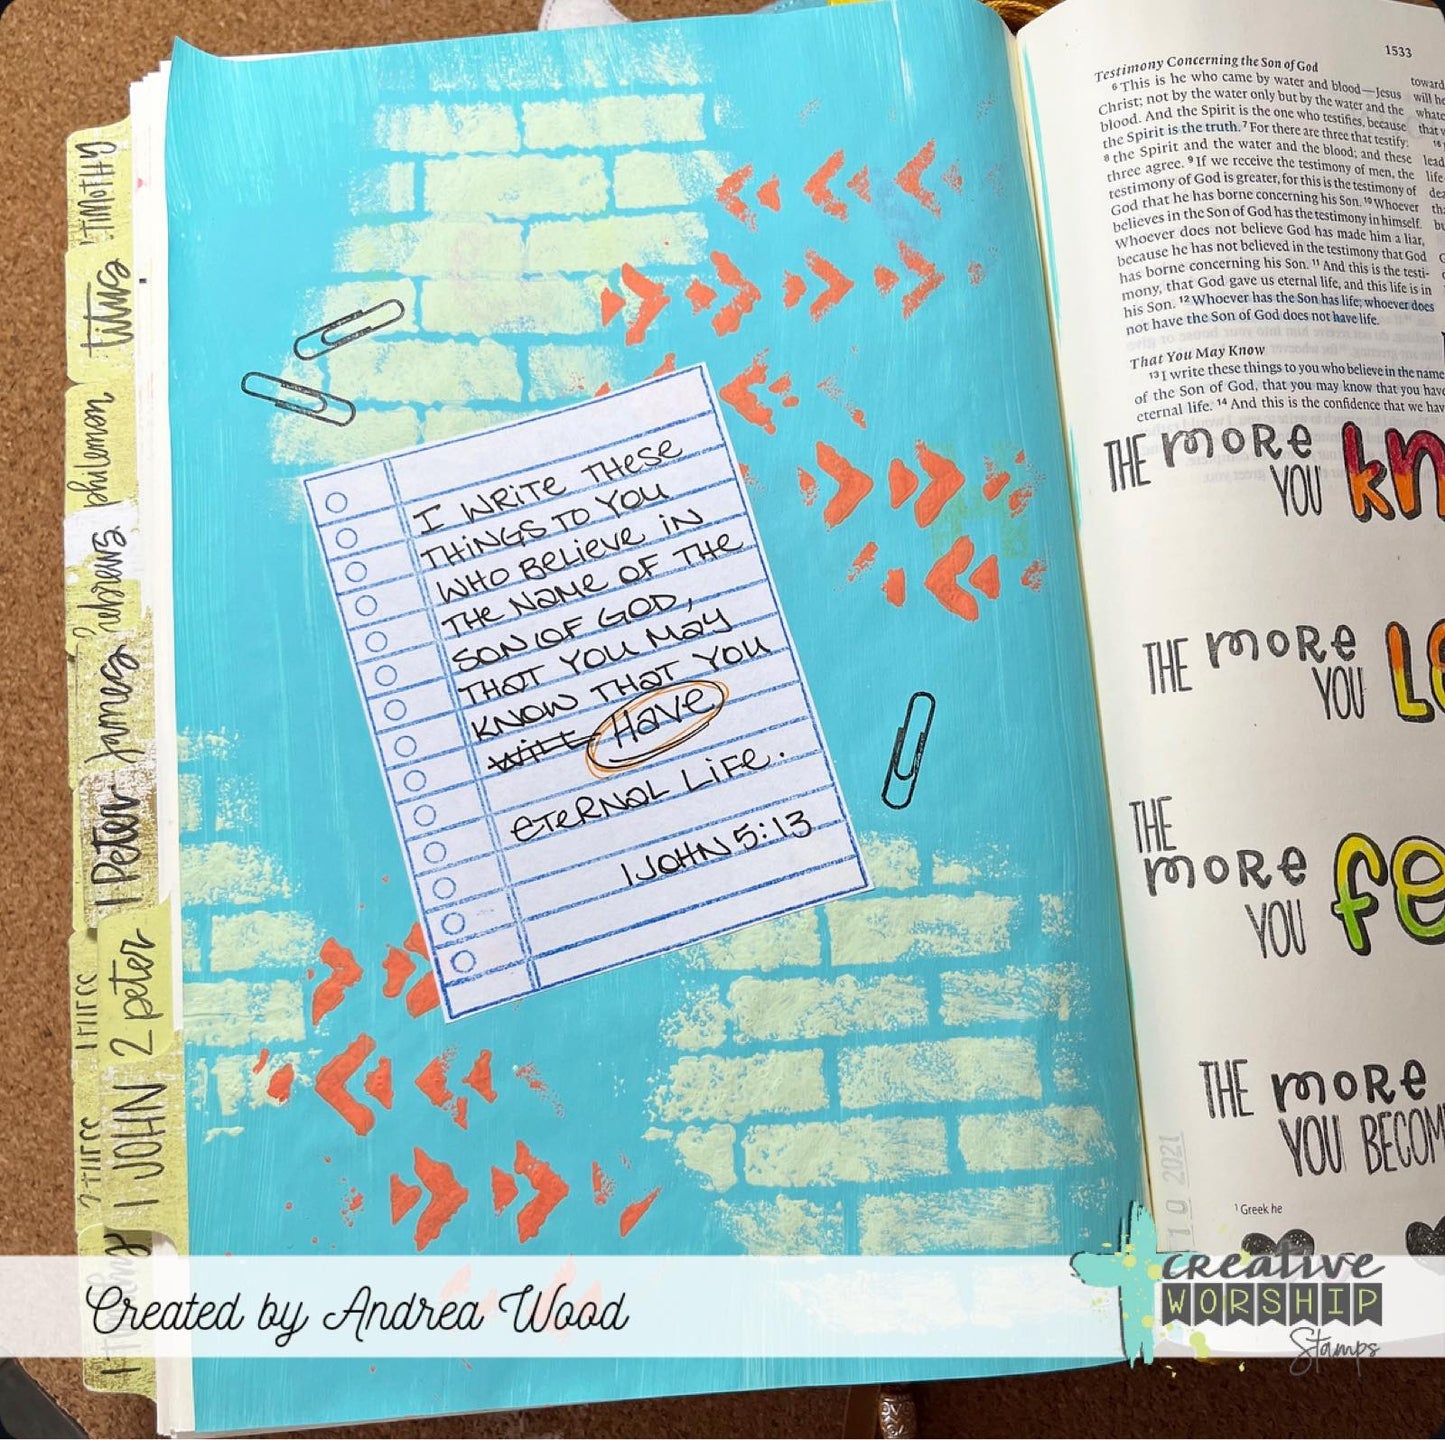 1 TIMOTHY
titus
philemon
James
1 Peter
2 peter
1 JOHN
I WRITE THESE
THINGS TO YOU
WHO BELIEVE IN
THE NAME OF THE
SON OF GOD,
THAT YOU MAY
KNOW THAT YOU
WILL HAVE
ETERNAL LIFE.
1 JOHN 5:13
1533
Testimony Concerning the Son of God
6 This is he who came by water and blood—Jesus
Christ; not by the water only but by the water and the
blood. And the Spirit is the one who testifies, because
the Spirit is the truth. 7 For there are three that testify:
8 the Spirit and the water and the blood; and these
three agree. 9 If we receive the testimony of men, the
testimony of God is greater, for this is the testimony of
God that he has borne concerning his Son. 10 Whoever
believes in the Son of God has the testimony in himself.
Whoever does not believe God has made him a liar,
because he has not believed in the testimony that God
has borne concerning his Son. 11 And this is the testi-
mony, that God gave us eternal life, and this life is in
his Son. 12 Whoever has the Son has life; whoever does
not have the Son of God does not have life.
That You May Know
13 I write these things to you who believe in the name
of the Son of God, that you may know that you have
eternal life. 14 And this is the confidence that we hav
toward
will he
what
that
16
lead
life
THE MORE
YOU kn
THE MORE
YOU Lo
THE
MORE
YOU fe
THE MORE
YOU BECOM
1 Greek he
10 2021
Created by Andrea Wood
CREATIVE
WORSHIP
Stamps